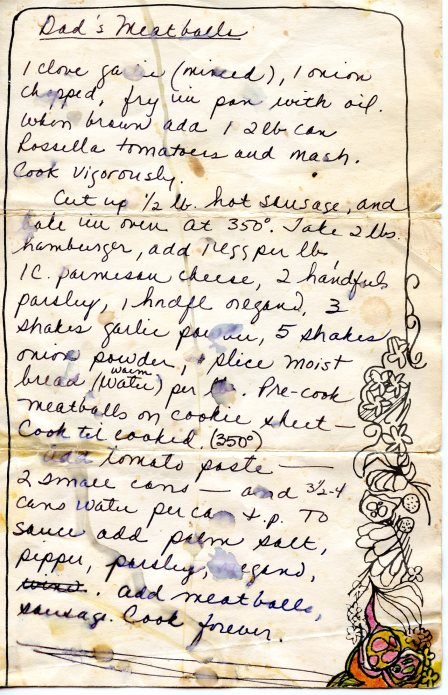 Dad's Meatballs
1 clove garlic (minced), 1 onion
chopped, fry in pan with oil.
When brown add 1 2lb can
Rosella tomatoers and mash.
Cook vigorously.
Cut up 1/2 lb. hot sausage, and
bake in oven at 350°. Take 2 lbs.
hamburger, add 1 egg per lb,
1 C. parmesan cheese, 2 handfuls
parsley, 1 hndfl oregano, 3
shakes garlic powder, 5 shakes
onion powder, 1 slice moist
bread (warm water) per lb. Pre-cook
meatballs on cookie sheet —
Cook til cooked. (350°)
add tomato paste —
2 small cans — and 3 1/2-4
cans water per can t.p. To
sauce add salt,
pepper, parsley, oregano,
add meatballs,
sausage. Cook forever.